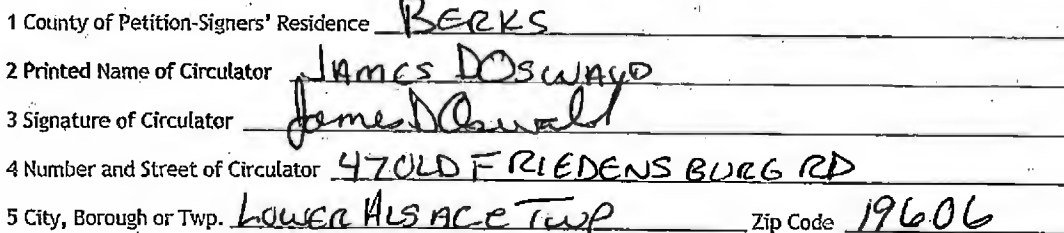 1 County of Petition-Signers' Residence BERKS
2 Printed Name of Circulator JAMES D OSWALD
3 Signature of Circulator James D Oswald
4 Number and Street of Circulator 47 OLD FRIEDENSBURG RD
5 City, Borough or Twp. LOWER ALSACE TWP Zip Code 19606